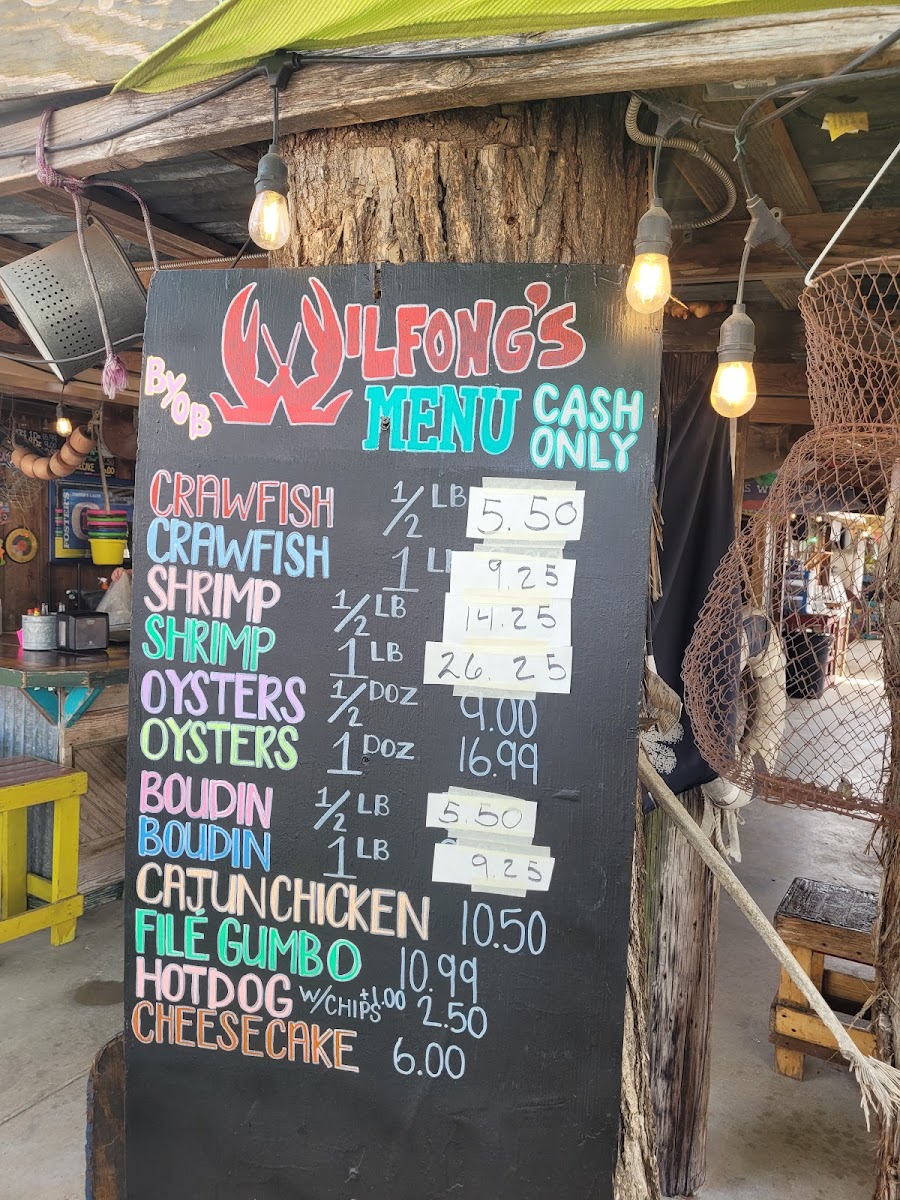 WILFONG'S
BYOB
MENU
CASH
ONLY
CRAWFISH 1/2 LB 5.50
CRAWFISH 1 LB 9.25
SHRIMP 1/2 LB 14.25
SHRIMP 1 LB 26.25
OYSTERS 1/2 DOZ 9.00
OYSTERS 1 DOZ 16.99
BOUDIN 1/2 LB 5.50
BOUDIN 1 LB 9.25
CAJUN CHICKEN 10.50
FILÉ GUMBO 10.99
HOTDOG W/CHIPS +1.00 2.50
CHEESECAKE 6.00
FOSTER'S